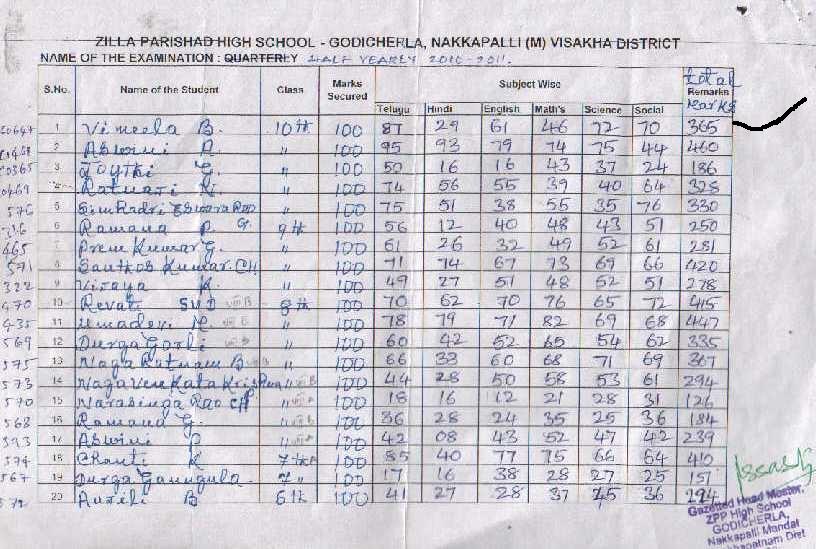 ZILLA PARISHAD HIGH SCHOOL - GODICHERLA, NAKKAPALLI (M) VISAKHA DISTRICT
NAME OF THE EXAMINATION : QUARTERLY HALF YEARLY 2010-2011.
S.No. Name of the Student Class Marks Secured Subject Wise total Remarks Marks
Telugu Hindi English Math's Science Social
1 Vimeela B. 10th 100 87 29 61 46 72 70 365
2 Aswini P. " 100 95 93 79 74 75 44 460
3 Joythi G. " 100 50 16 16 43 37 24 186
4 Ratnari K. " 100 74 56 55 39 40 64 328
576 5 Simhadri Eswara Rao G. " 100 75 51 38 55 35 76 330
6 Ramana P. 9th 100 56 12 40 48 43 51 250
465 7 Prem Kumar G. " 100 61 26 32 49 52 61 281
571 8 Santhos Kumar. CH " 100 71 74 67 73 69 66 420
322 9 Vijaya K. " 100 49 27 51 48 52 51 278
470 10 Revati SVD VIII B 8th 100 70 62 70 76 65 72 415
435 11 Umadevi M. VIII B " 100 78 79 71 82 69 68 447
569 12 Durga Gorli VIII B " 100 60 42 52 65 54 62 335
575 13 Naga Ratnam B VIII B " 100 66 33 60 68 71 69 367
573 14 Naga Venkata Krishna " VIII B 100 44 28 50 58 53 61 294
570 15 Narasinga Rao CH " VIII A 100 18 16 12 21 28 31 126
568 16 Ramana G. " VIII B 100 36 28 24 35 25 36 184
393 17 Aswini P " VIII A 100 42 08 43 52 47 42 239
574 18 Chanti K 7th A 100 85 40 77 75 66 64 410
567 19 Durga Gaungula 7 " 100 17 16 38 28 27 25 151
572 20 Aurili B 6th 100 41 27 28 37 45 36 224
Gazetted Head Master,
ZPP High School
GODICHERLA,
Nakkapalli Mandal